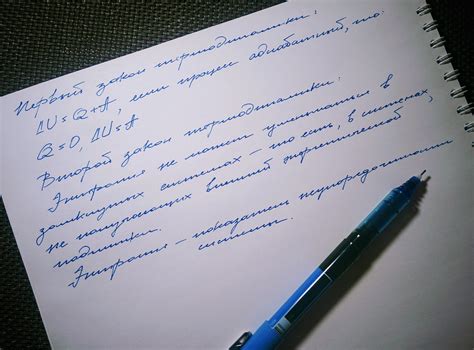 Первый закон термодинамики:
ΔU = Q + A, если процес адиабатный, то:
Q = 0, ΔU = A
Второй закон термодинамики:
Энтропия не может уменьшаться в
замкнутых системах – то есть, в системах,
не получающих внешней энергетической
подпитки.
Энтропия – показатель неупорядоченности
системы.